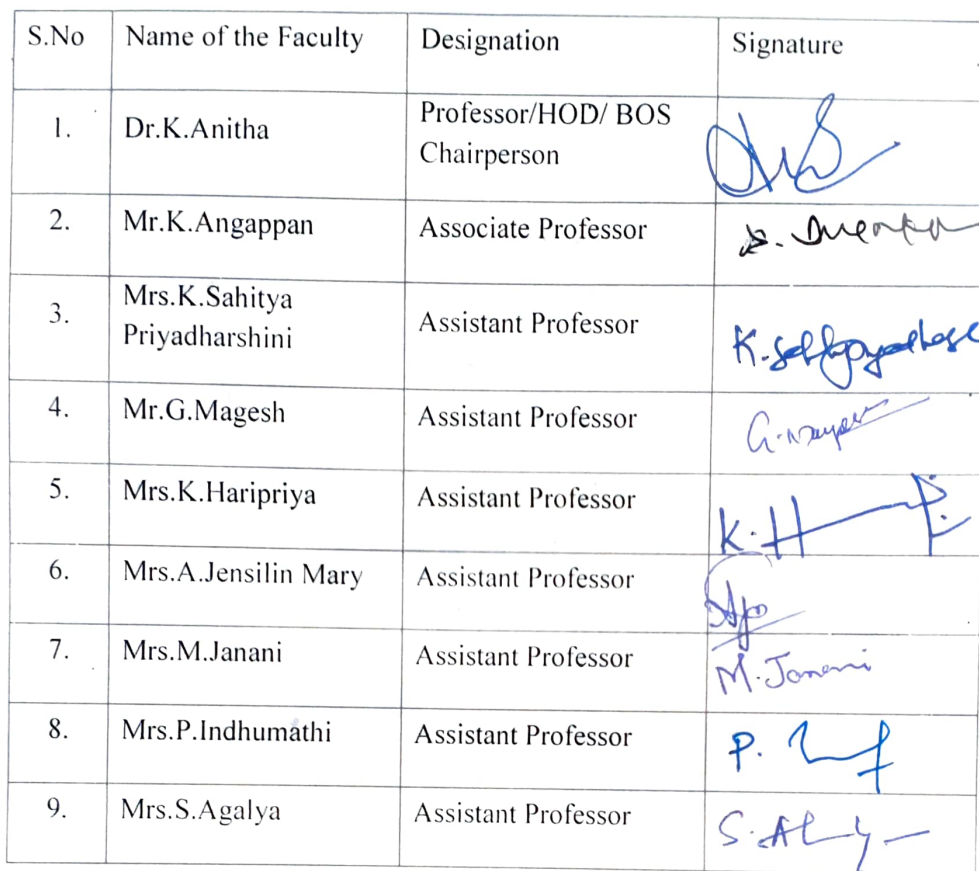 S.No Name of the Faculty Designation Signature
1. Dr.K.Anitha Professor/HOD/ BOS
Chairperson
2. Mr.K.Angappan Associate Professor
3. Mrs.K.Sahitya
Priyadharshini Assistant Professor
4. Mr.G.Magesh Assistant Professor
5. Mrs.K.Haripriya Assistant Professor
6. Mrs.A.Jensilin Mary Assistant Professor
7. Mrs.M.Janani Assistant Professor M.Janani
8. Mrs.P.Indhumathi Assistant Professor
9. Mrs.S.Agalya Assistant Professor